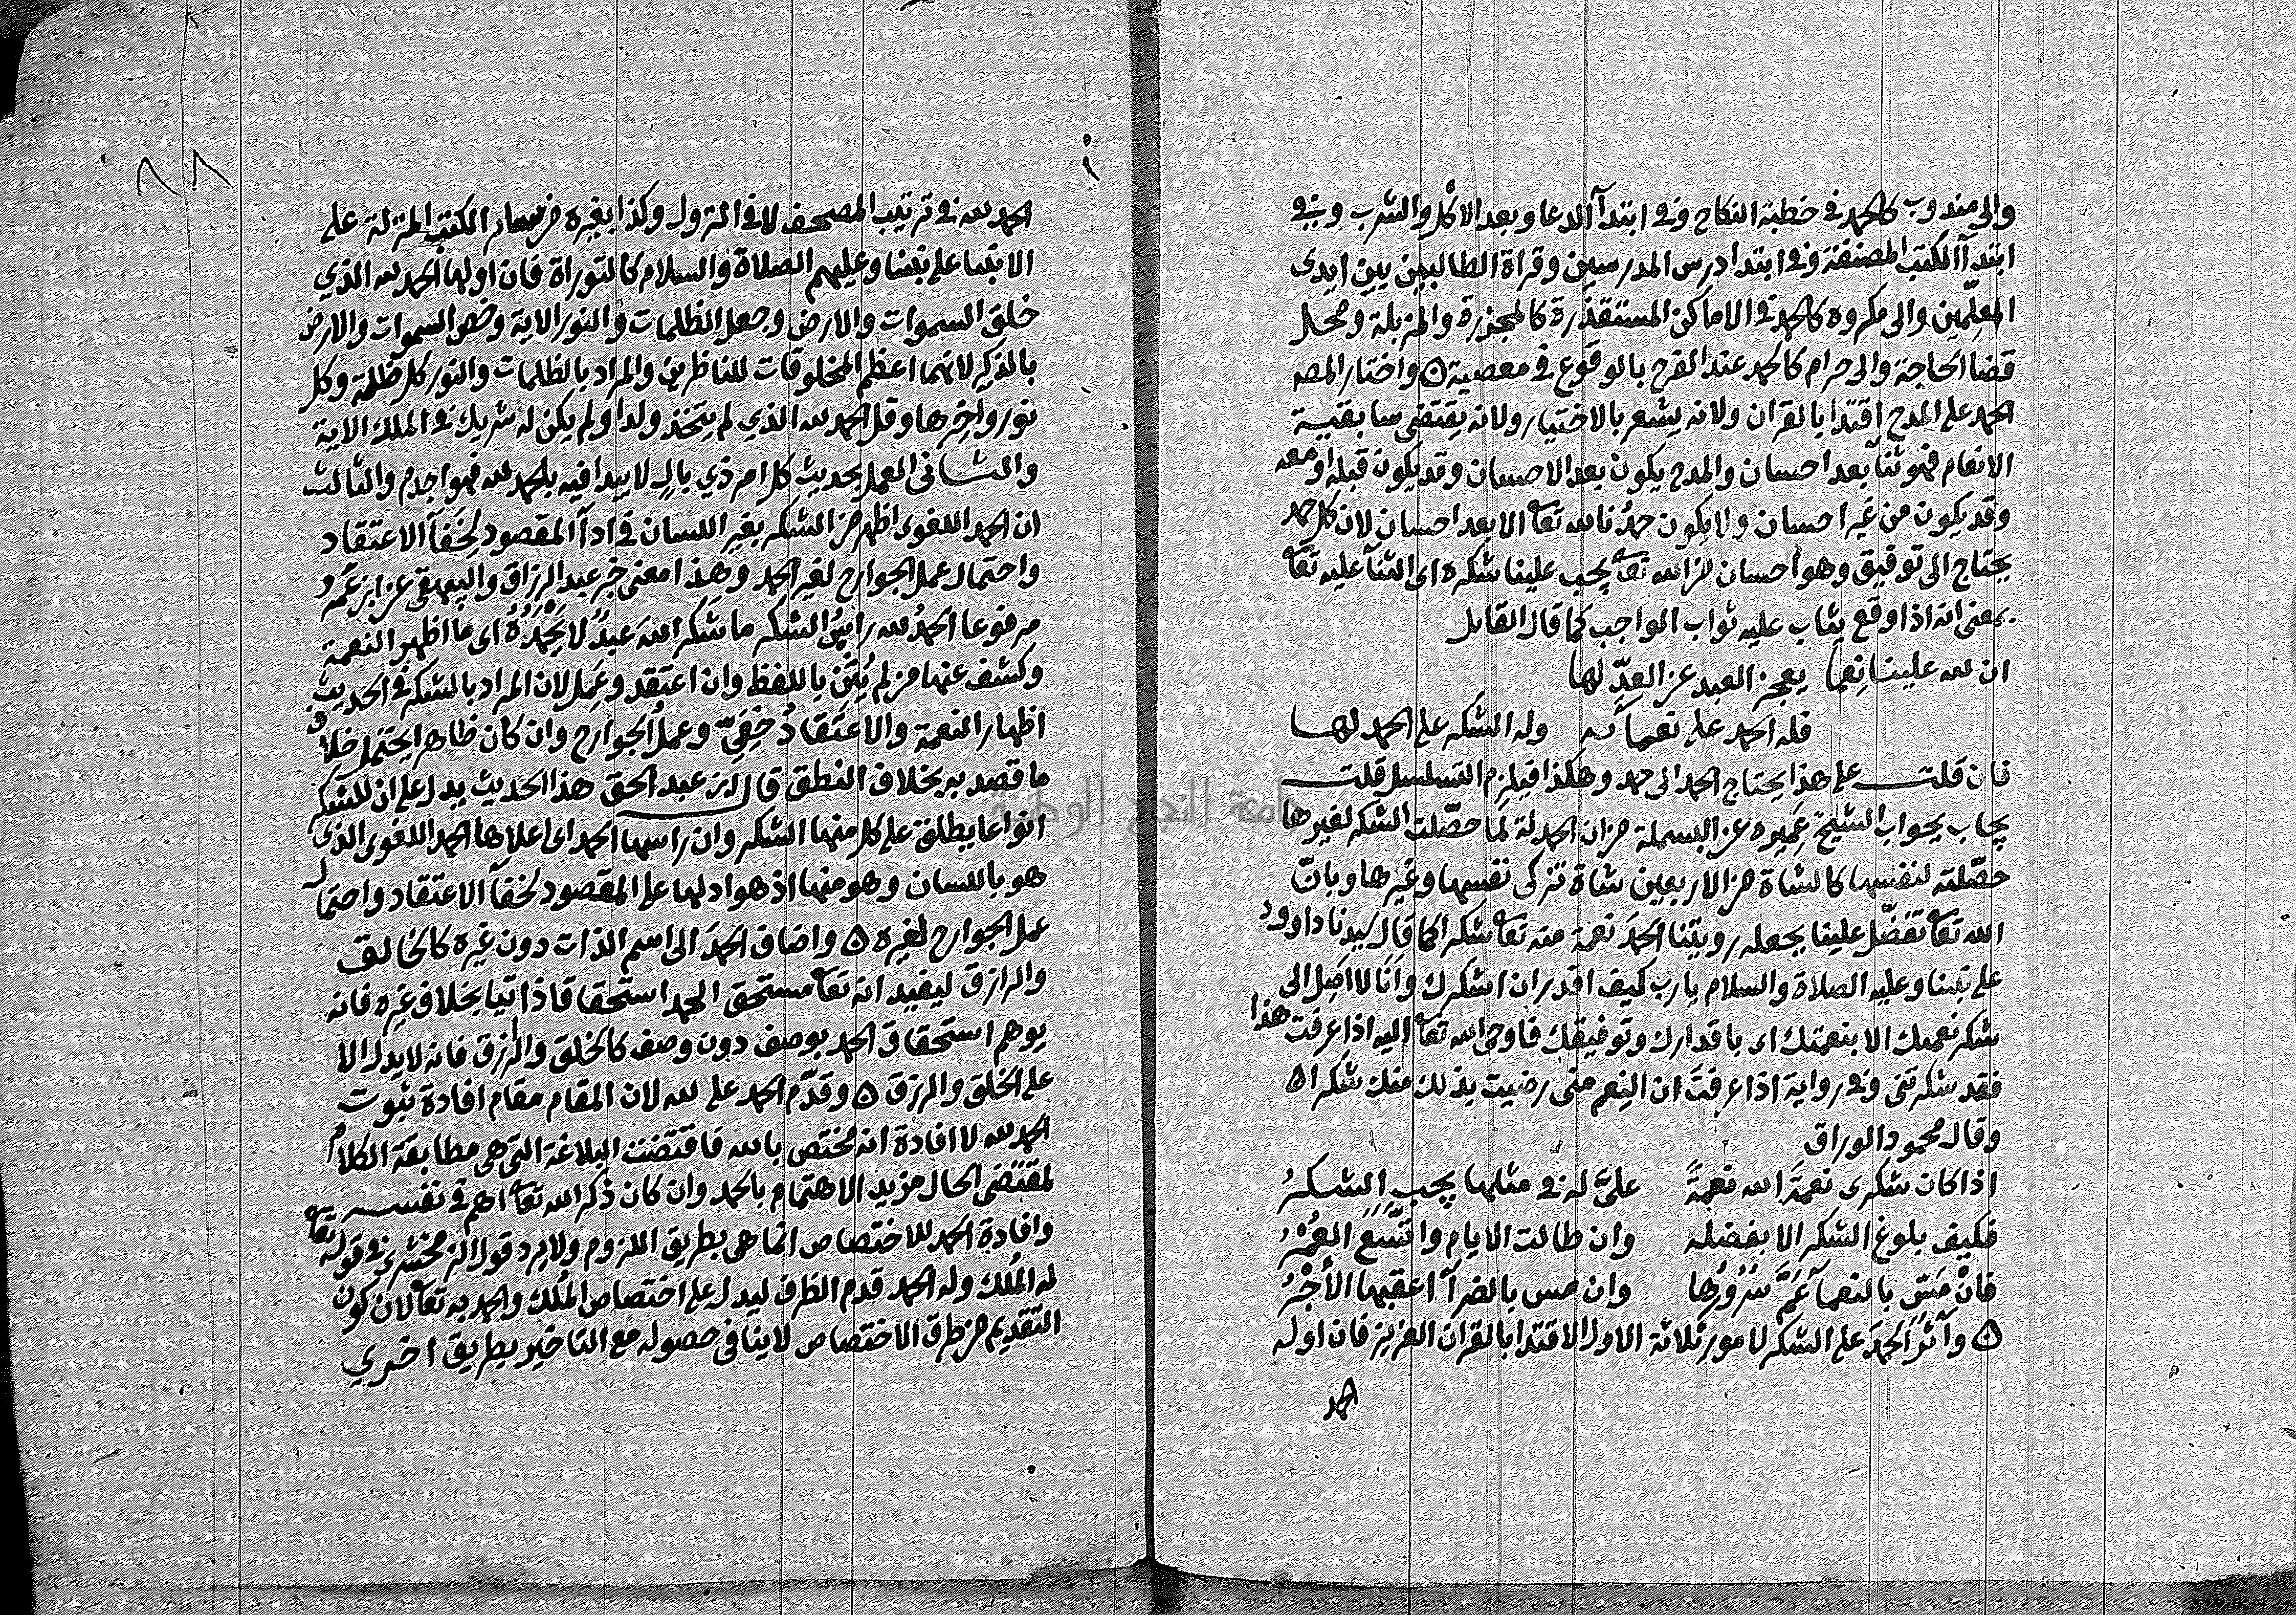 والى مندوب كالحمد في خطبة النكاح وفي ابتدآ الدعا وبعد الاكل والشرب وفي
ابتدآ الكتب المصنفة وفي ابتدا درس المدرسين وقراة الطالبين بين ايدى
المعلِّمين والى مكروه كالحمد في الاماكن المستقذرة كالمجزرة والمزبلة ومحل
قضا الحاجة والى حرام كالحمد عند الفرح بالوقوع في معصية ٥ واختار المصه
الحمد على المدح اقتدا بالقران ولانه يشعر بالاختيار ولانه يقتضى سابقية
الانعام فهو ثنآ بعد احسان والمدح يكون بعد الاحسان وقد يكون قبله او معه
وقد يكون من غير احسان ولا يكون حمدُنا لله تعا الا بعد احسان لان كل حمد
يحتاج الى توفيق وهو احسان من الله تعا يجب علينا شكره اى الثنآ عليه تعا
بمعنى انه اذا وقع يثاب عليه ثواب الواجب كما قال القايل
ان لله علينا نِعما يعجز العبد عن العدِّ لها
فله الحمد على نعمائه وله الشكر على الحمد لها
فان قلت على هذا يحتاج الحمد الى حمد وهكذا فيلزم التسلسل قلت
يجاب بجواب الشيخ عَمِيره عن البسملة من ان الحمدلة لَمّا حصّلت الشكر لغيرها
حصّلته لنفسها كالشاة من الاربعين شاة تزكى نفسها وغيرها وبانّ
الله تعا تفضّل علينا بجعله رويتنا الحمدَ نعمة منه تعا شكرا كما قال سيدنا داوود
على نبينا وعليه الصلاة والسلام يا رب كيف اقدر ان اشكرك وانا لا اصِل الى
شكر نعمتك الا بنعمتك اى باقدارك وتوفيقك فاوحى الله تعا اليه اذا عرفت هذا
فقد شكرتنى وفي رواية اذا عرفتَ ان النِعم منى رضيت بذلك منك شكرا ٥
وقال محمود الوراق
اذا كان شكرى نعمَة الله نعمةً علىَّ له في مثلها يجب الشكرُ
فكيف بلوغ الشكر الا بفضله وان طالت الايام واتّسَع العمُرُ
فانْ مَسّ بالنعمآ عَمَّ سُرُورُها وان مس بالضرآ اعقبها الأجْرُ
٥ وآثرَ الحمدَ على الشكر لامور ثلاثة الاول الاقتدا بالقران العزيز فان اوله
الحمد
الحمد لله في ترتيب المصحف لا في النزول وكذا بغيره من ساير الكتب المنزلة على
الانبيا على نبينا وعليهم الصلاة والسلام كالتوراة فان اولها الحمد لله الذي
خلق السموات والارض وجعل الظلمات والنور الاية وخص السموات والارض
بالذكر لانهما اعظم المخلوقات للناظرين والمراد بالظلمات والنور كل ظلمة وكل
نور واخرها وقل الحمد لله الذي لم يتخذ ولدا ولم يكن له شريك في الملك الاية
والثاني العمل بحديث كل امر ذي بال لا يبدا فيه بالحمد لله فهو اجذم والثالث
ان الحمد اللغوى اظهر من الشكر بغير اللسان في ادآ المقصود لِخَفآ الاعتقاد
واحتمال عمل الجوارح لغير الحمد وهذا معنى خبر عبد الرزاق والبيهقى عن ابن عُمَرُ
مرفوعا الحمدُ لله راسُ الشكر ما شكر اللهَ عبدٌ لا يَحْمَدُهُ اى ما اظهر النعمة
وكشف عنها من لم يُثْنِ باللفظ وان اعتقد وعَمِل لان المراد بالشكر في الحديث
اظهار النعمة والاعتقادُ خفِىٌّ وعملُ الجوارح وان كان ظاهرا يحتمل خلاف
ما قصد به بخلاف النطق قال ابن عبد الحق هذا الحديث يدل على ان للشكر
انواعا يطلق على كل منها الشكر وان راسها الحمد اى اعلاها الحمد اللغوى الذى
هو باللسان وهو منها اذ هو ادلها على المقصود لخفآ الاعتقاد واحتمال
عمل الجوارح لغيره ٥ واضاف الحمدَ الى اسم الذات دون غيره كالخالق
والرازق ليفيد انه تعا مستحق الحمد استحقاقا ذاتيا بخلاف غيره فانه
يوهم استحقاق الحمد بوصف دون وصف كالخلق والرزق فانه لا يدل الا
على الخلق والرزق ٥ وقدّم الحمد على لله لان المقام مقام افادة ثبوت
الحمد لله لا افادة انه مختص بالله فاقتضت البلاغة التى هى مطابقة الكلام
لمقتضى الحال مزيد الاهتمام بالحمد وان كان ذكر الله تعا اهم في نفسه
وافادة الحمد للاختصاص انما هى بطريق اللزوم ولا يرد قول الزمخشرى في قوله تعا
له المُلك وله الحمد قدم الظرف ليدل على اختصاص المُلك والحمد به تعا لان كون
التقديم من طرق الاختصاص لا ينافى حصوله مع التاخير بطريق اخري
جامعة النجاح الوطنية